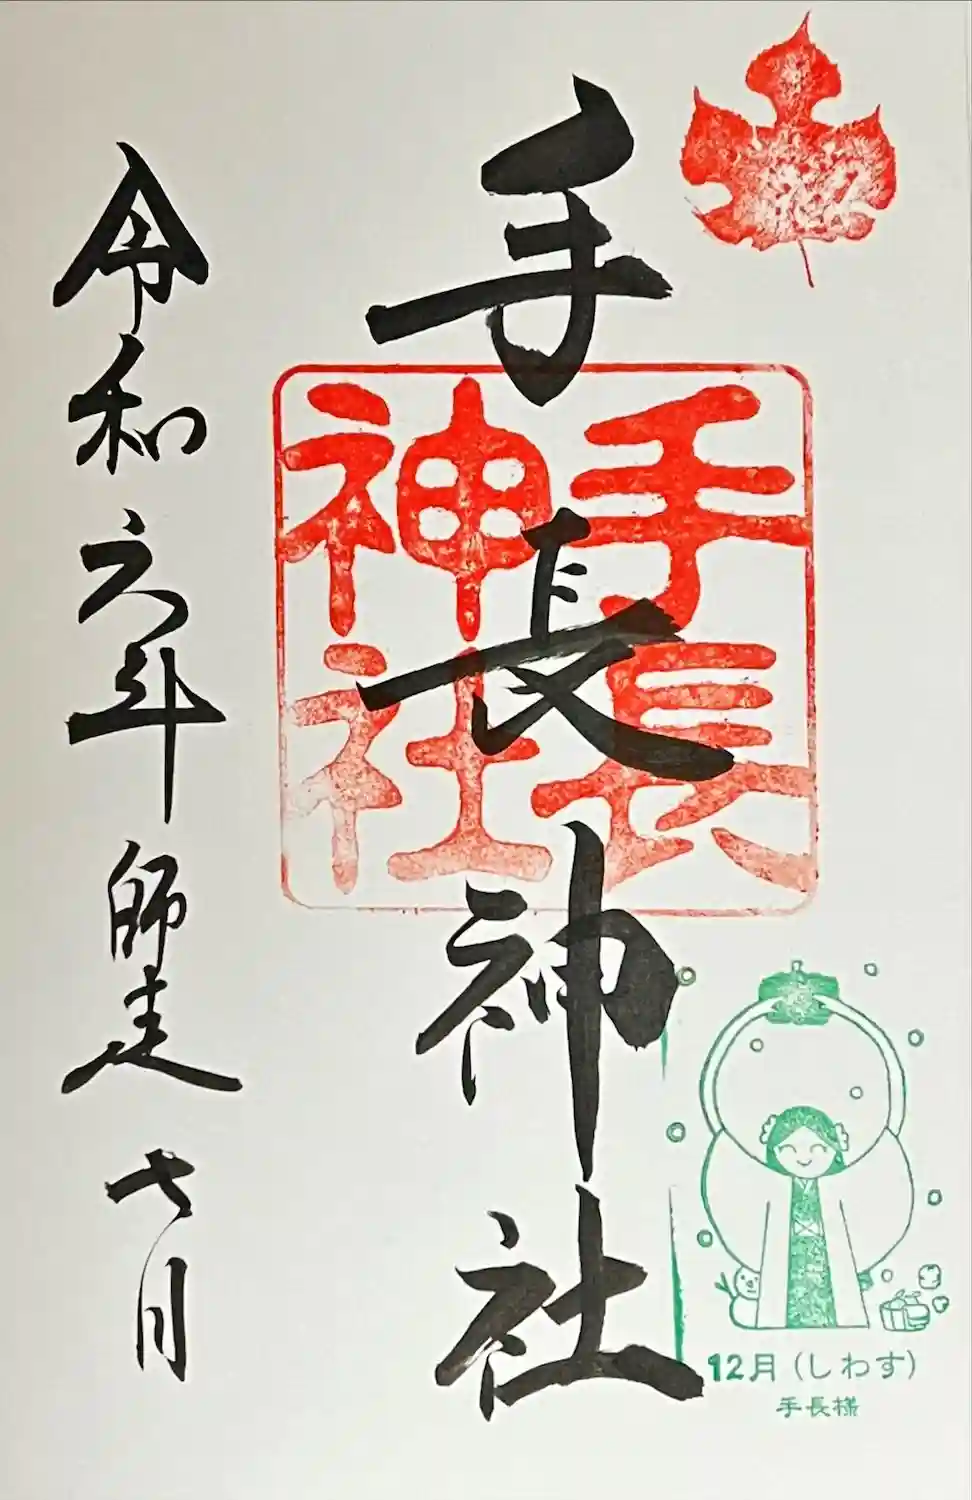 手長神社
手長
神社
令和六年師走七日
12月（しわす）
手長様